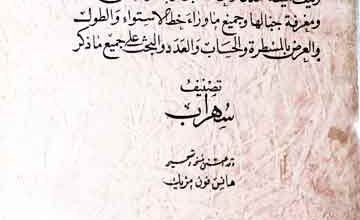 ومعرفة جبالها وجميع ما وراء خط الاستواء والطول
والعرض بالمسطرة والحساب والعدد والبحث على جميع ما ذكر
تصنيف
سهراب
وقد اعتنى بنسخه وتصحيحه
هانس فون مژيك